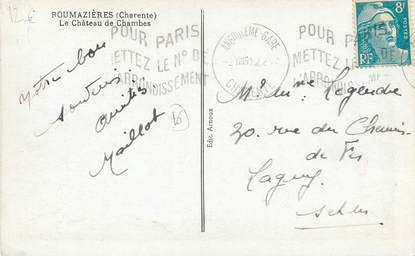 12€
ROUMAZIÈRES (Charente)
Le Château de Chambes
POUR PARIS
METTEZ LE N° DE
L'ARRONDISSEMENT
ANGOULEME-GARE
CHARENTE
POUR PARIS
METTEZ LE N° DE
L'ARRONDISSEMENT
8F
RF
Notre bon
souvenir
Amitiés
Maillot
6
Edit. Arnoux
Mr & Mme Legendre
20. rue du Chemin
de Fer
Lagny
S & M